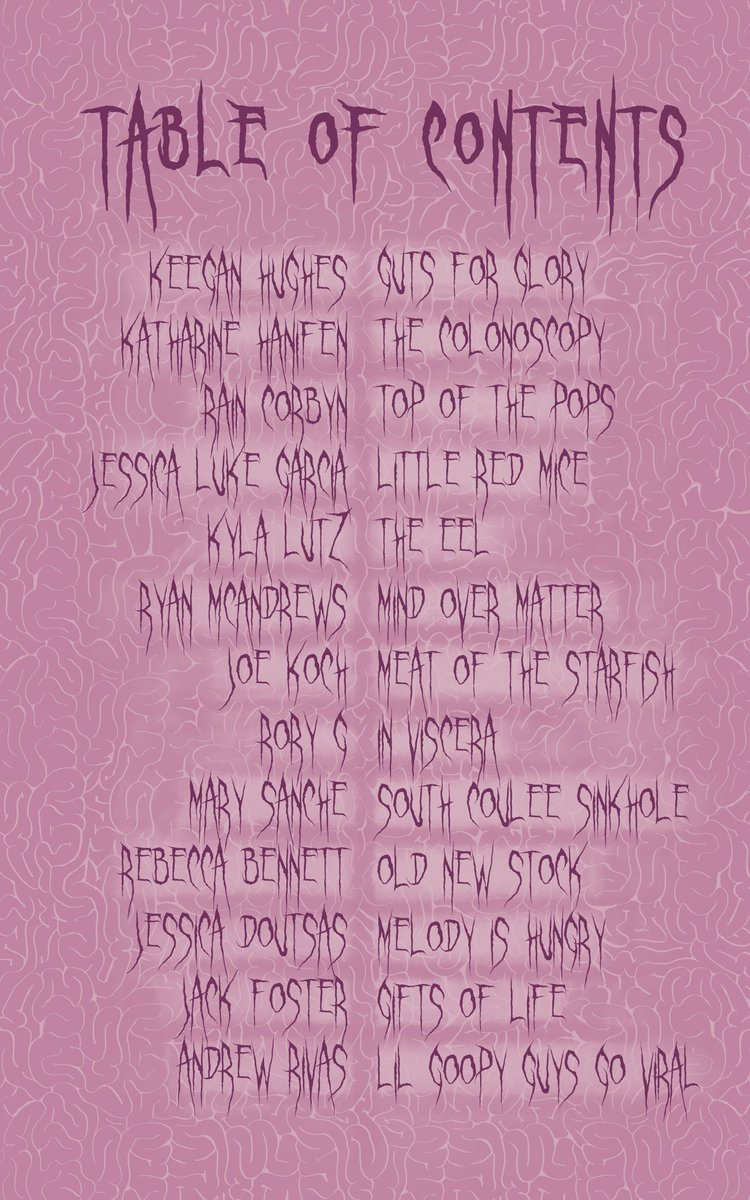 TABLE OF CONTENTS
KEEGAN HUGHES GUTS FOR GLORY
KATHARINE HANIFEN THE COLONOSCOPY
RAIN CORBYN TOP OF THE POPS
JESSICA LUKE GARCIA LITTLE RED MICE
KYLA LUTZ THE EEL
RYAN MCANDREWS MIND OVER MATTER
JOE KOCH MEAT OF THE STARFISH
RORY G IN VISCERA
MARY SANCHE SOUTH COULEE SINKHOLE
REBECCA BENNETT OLD NEW STOCK
JESSICA DOUTSAS MELODY IS HUNGRY
JACK FOSTER GIFTS OF LIFE
ANDREW RIVAS LIL GOOPY GUYS GO VIRAL